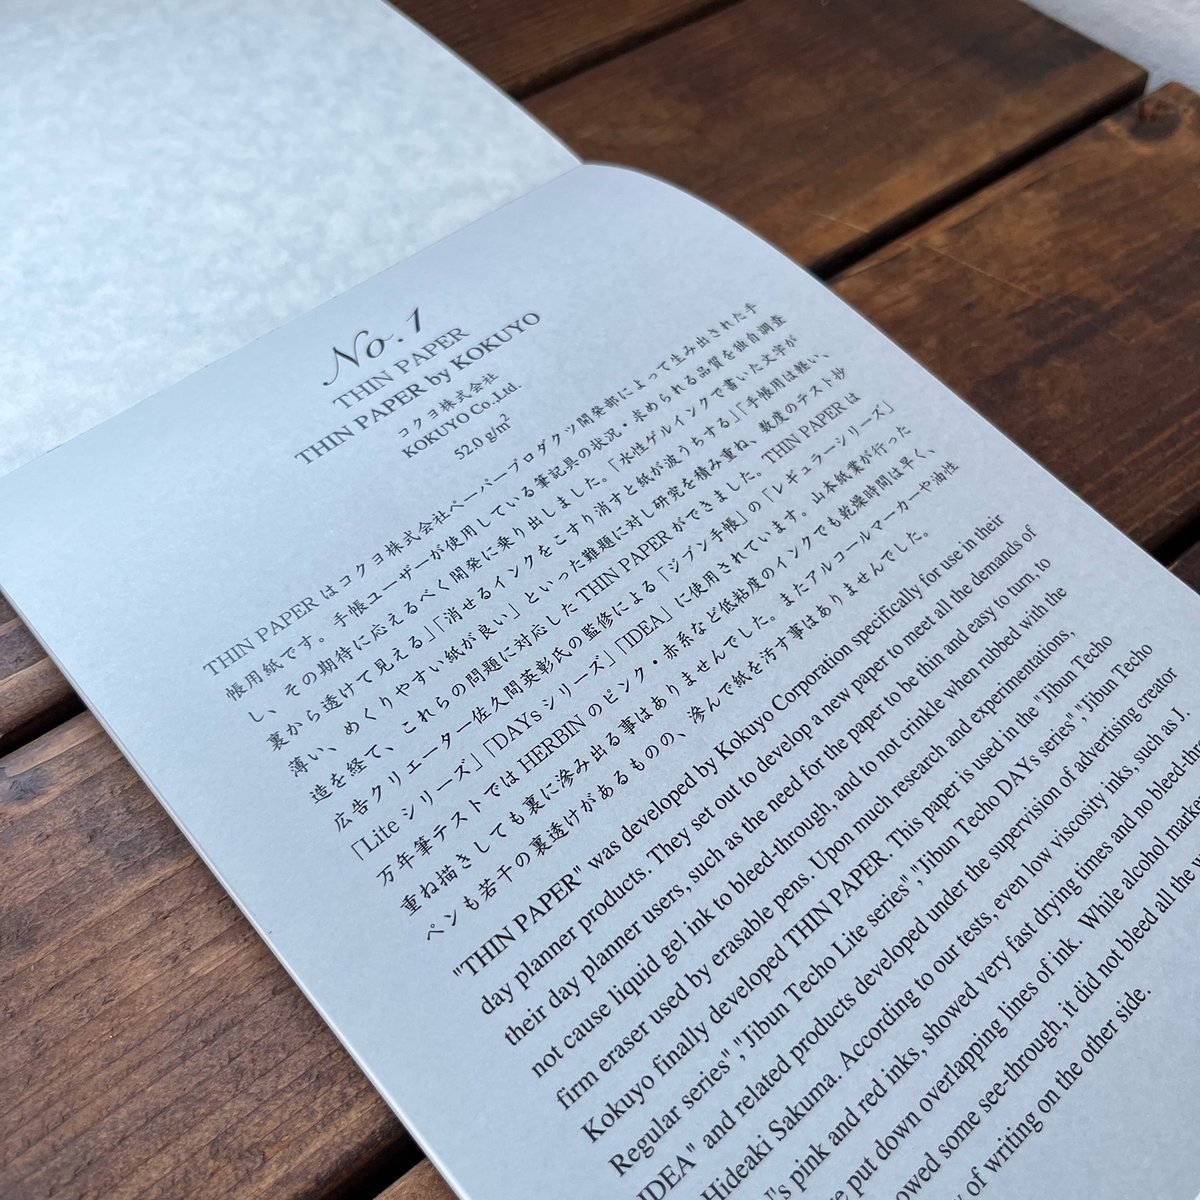 No. 1
THIN PAPER
THIN PAPER by KOKUYO
コクヨ株式会社
KOKUYO Co.,Ltd.
52.0 g/m²
THIN PAPER はコクヨ株式会社ペーパープロダクツ開発部によって生み出された手
帳用紙です。手帳ユーザーが使用している筆記具の状況・求められる品質を独自調査
し、その期待に応えるべく開発に乗り出しました。「水性ゲルインクで書いた文字が
裏から透けて見える」「消せるインクをこすり消すと紙が波うちする」「手帳用は軽い、
薄い、めくりやすい紙が良い」といった難題に対し研究を積み重ね、数度のテスト抄
造を経て、これらの問題に対応した THIN PAPER ができました。THIN PAPER は
広告クリエーター佐久間英彰氏の監修による「ジブン手帳」の「レギュラーシリーズ」
「Lite シリーズ」「DAYs シリーズ」「IDEA」に使用されています。山本紙業が行った
万年筆テストでは HERBIN のピンク・赤系など低粘度のインクでも乾燥時間は早く、
重ね描きしても裏に滲み出る事はありませんでした。またアルコールマーカーや油性
ペンも若干の裏透けがあるものの、滲んで紙を汚す事はありませんでした。
"THIN PAPER" was developed by Kokuyo Corporation specifically for use in their
day planner products. They set out to develop a new paper to meet all the demands of
their day planner users, such as the need for the paper to be thin and easy to turn, to
not cause liquid gel ink to bleed-through, and to not crinkle when rubbed with the
firm eraser used by erasable pens. Upon much research and experimentations,
Kokuyo finally developed THIN PAPER. This paper is used in the "Jibun Techo
Regular series","Jibun Techo Lite series","Jibun Techo DAYs series","Jibun Techo
IDEA" and related products developed under the supervision of advertising creator
Hideaki Sakuma. According to our tests, even low viscosity inks, such as J.
's pink and red inks, showed very fast drying times and no bleed-th
e put down overlapping lines of ink. While alcohol marke
owed some see-through, it did not bleed all the
of writing on the other side.